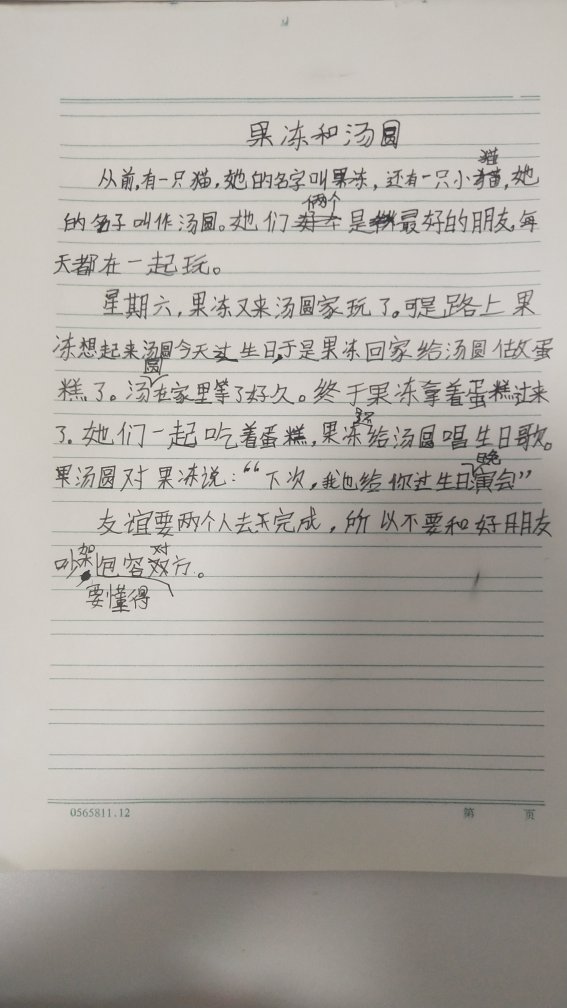 果冻和汤圆
从前,有一只猫,她的名字叫果冻,还有一只小猫,她
的名子叫作汤圆。她们俩个是最好的朋友,每
天都在一起玩。
星期六,果冻又来汤圆家玩了。可是路上果
冻想起来汤圆今天过生日,于是果冻回家给汤圆做蛋
糕了。汤圆在家里等了好久。终于果冻拿着蛋糕过来
了。她们一起吃着蛋糕,果冻还给汤圆唱生日歌。
汤圆对果冻说:“下次,我也给你过生日晚会”
友谊要两个人去完成,所以不要和好朋友
吵架要懂得包容对方。
0565811.12
第 页